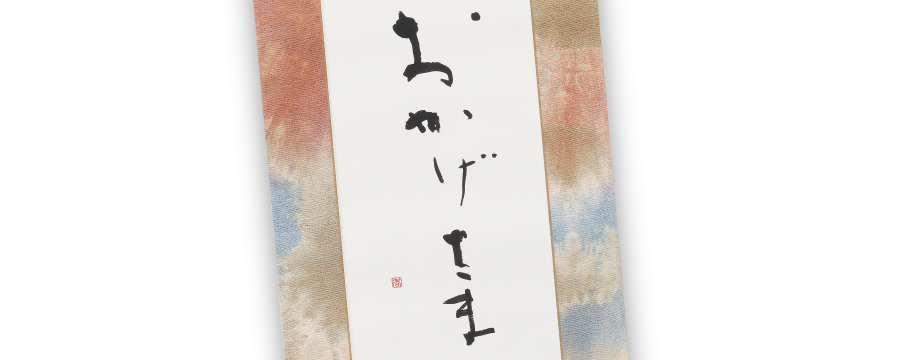 おかげさま